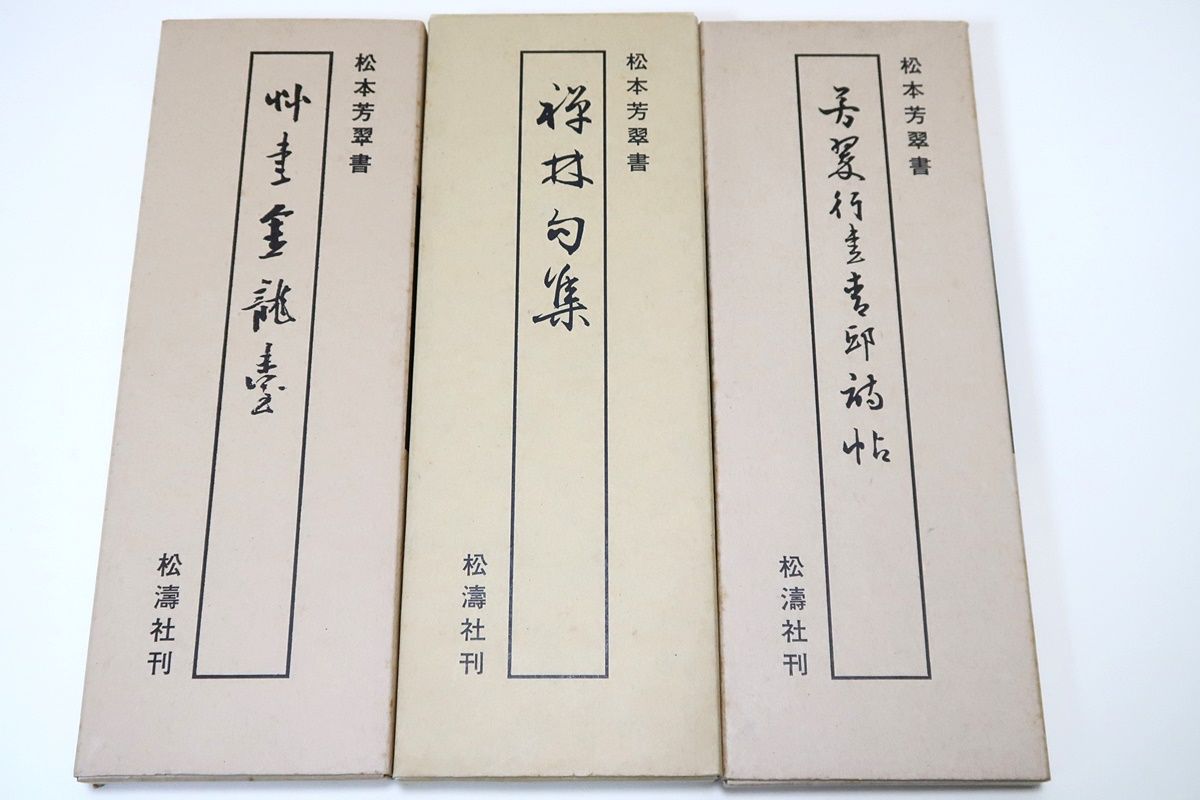 松本芳翠書
芳翠行書青邱詩帖
松濤社刊
松本芳翠書
禅林句集
松濤社刊
松本芳翠書
艸書金龍臺
松濤社刊